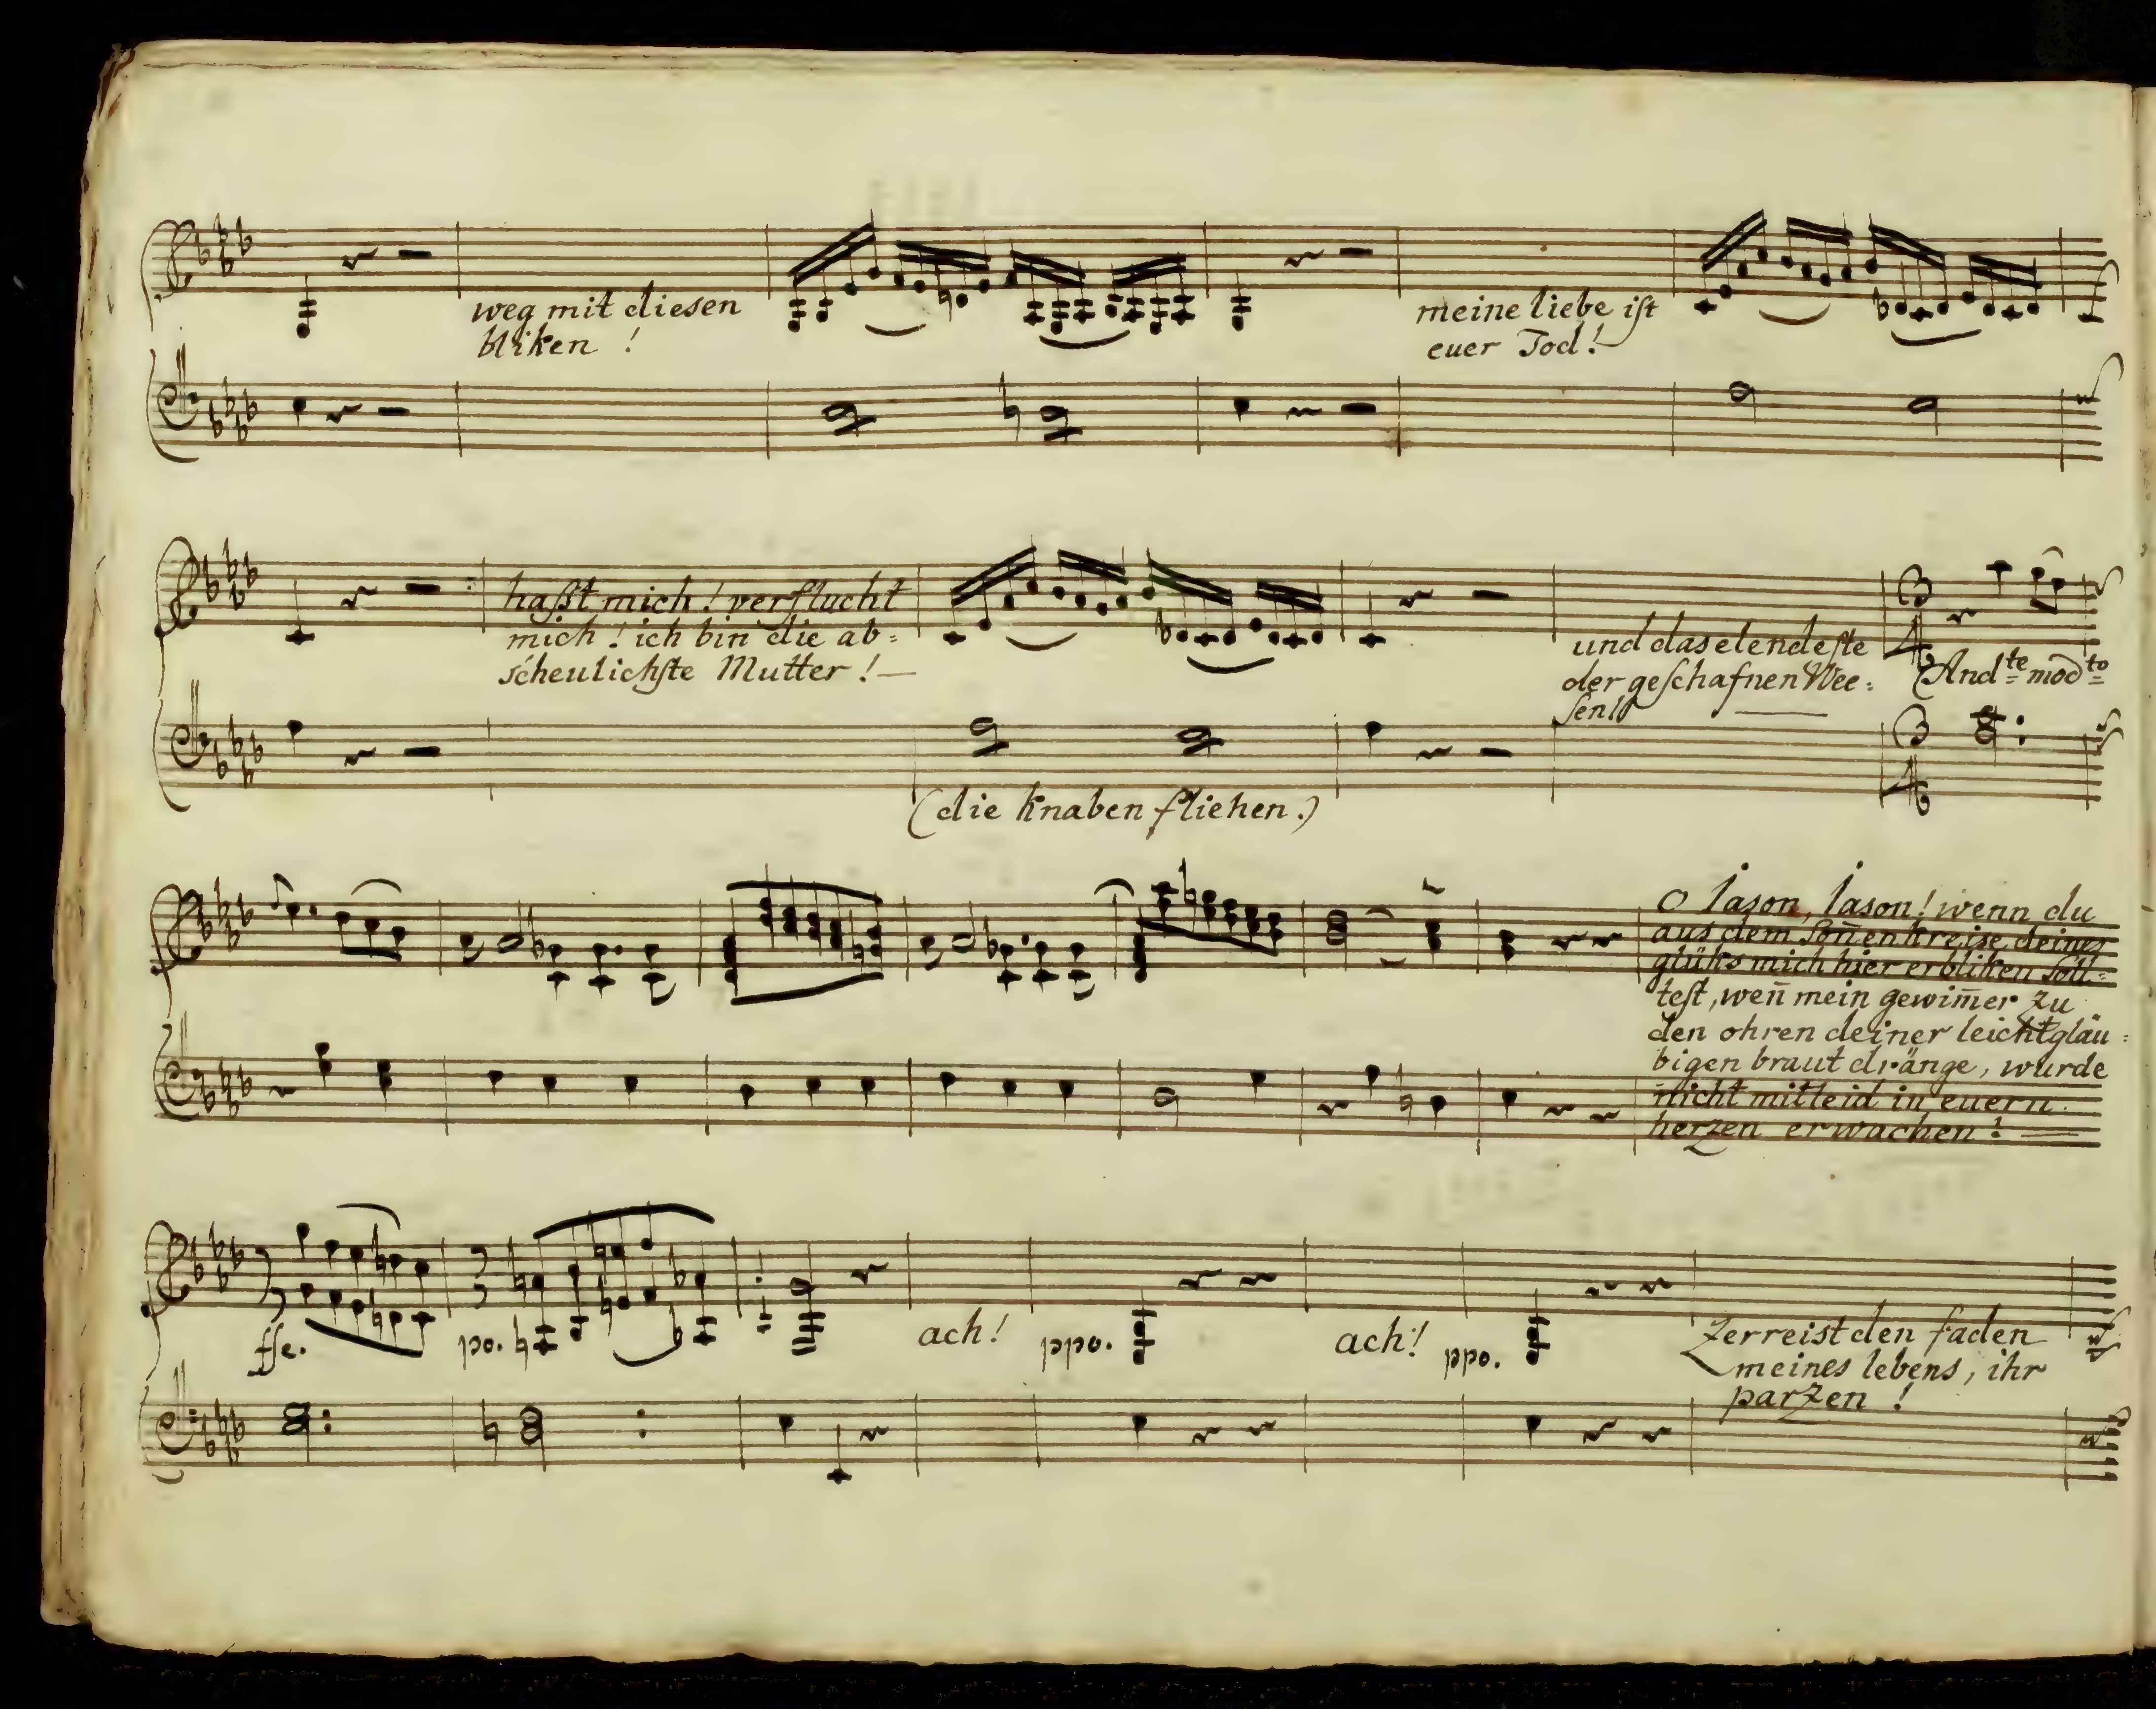 weg mit diesen
bliken !
meine liebe ist
euer Tod!
haßt mich! verflucht
mich! ich bin die ab=
scheulichste Mutter! —
und das elendeste
der geschafnen Wee=
sen!
3/4
And:te mod:to
3/4
(die Knaben fliehen.)
O Iason, Iason! wenn du
aus dem Soñenkreise deines
glüks mich hier erbliken soll=
test, weñ mein gewim̃er zu
den ohren deiner leichtgläu=
bigen braut dränge, wurde
nicht mitleid in euern
herzen erwachen! —
ffe.
po.
ach!
ppo.
ach!
ppo.
Zerreist den faden
meines lebens, ihr
parzen !